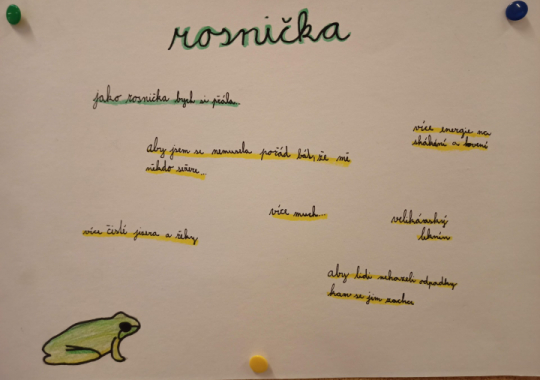 rosnička
jako rosnička bych si přála
více energie na
skákání a lovení
aby jsem se nemusela pořád bát, že mě
někdo sežere...
více much...
velikánský
leknín
více čisté jezera a řeky
aby lidi neházeli odpadky
kam se jim zachce